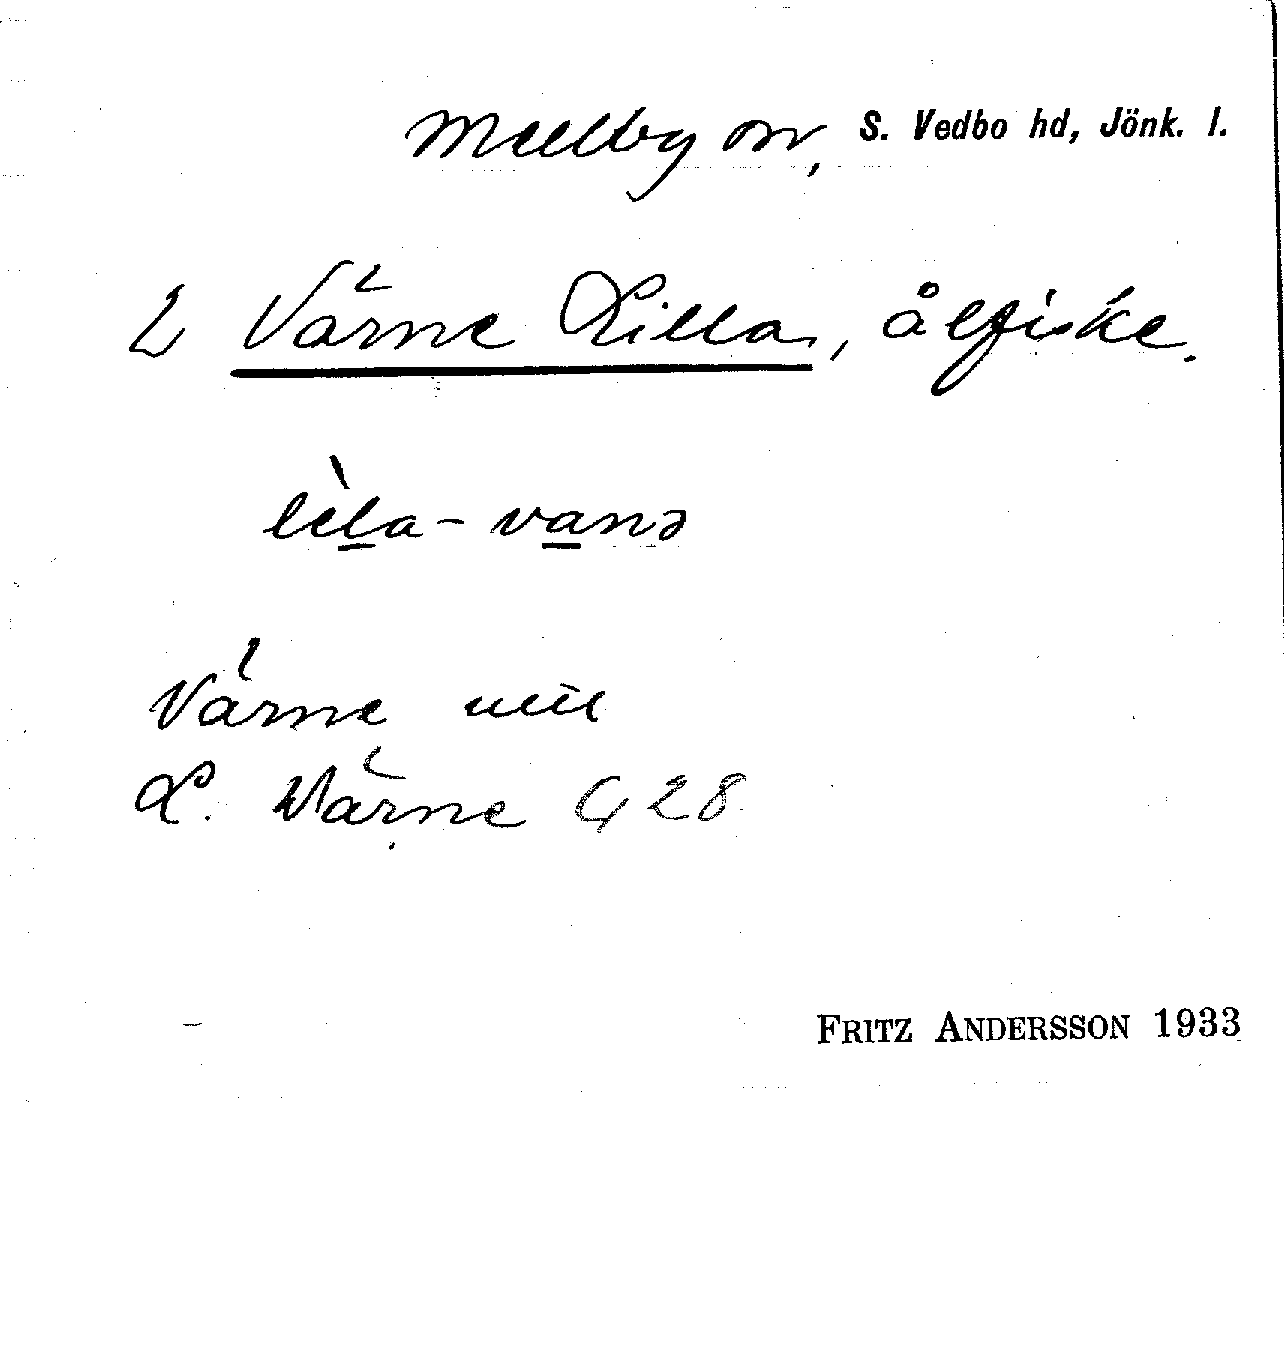 Mellby sn, S. Vedbo hd, Jönk. l.
2 Värne Lilla, ålfiske.
lìla-vanə
Värne
L. Wärne G 28
FRITZ ANDERSSON 1933